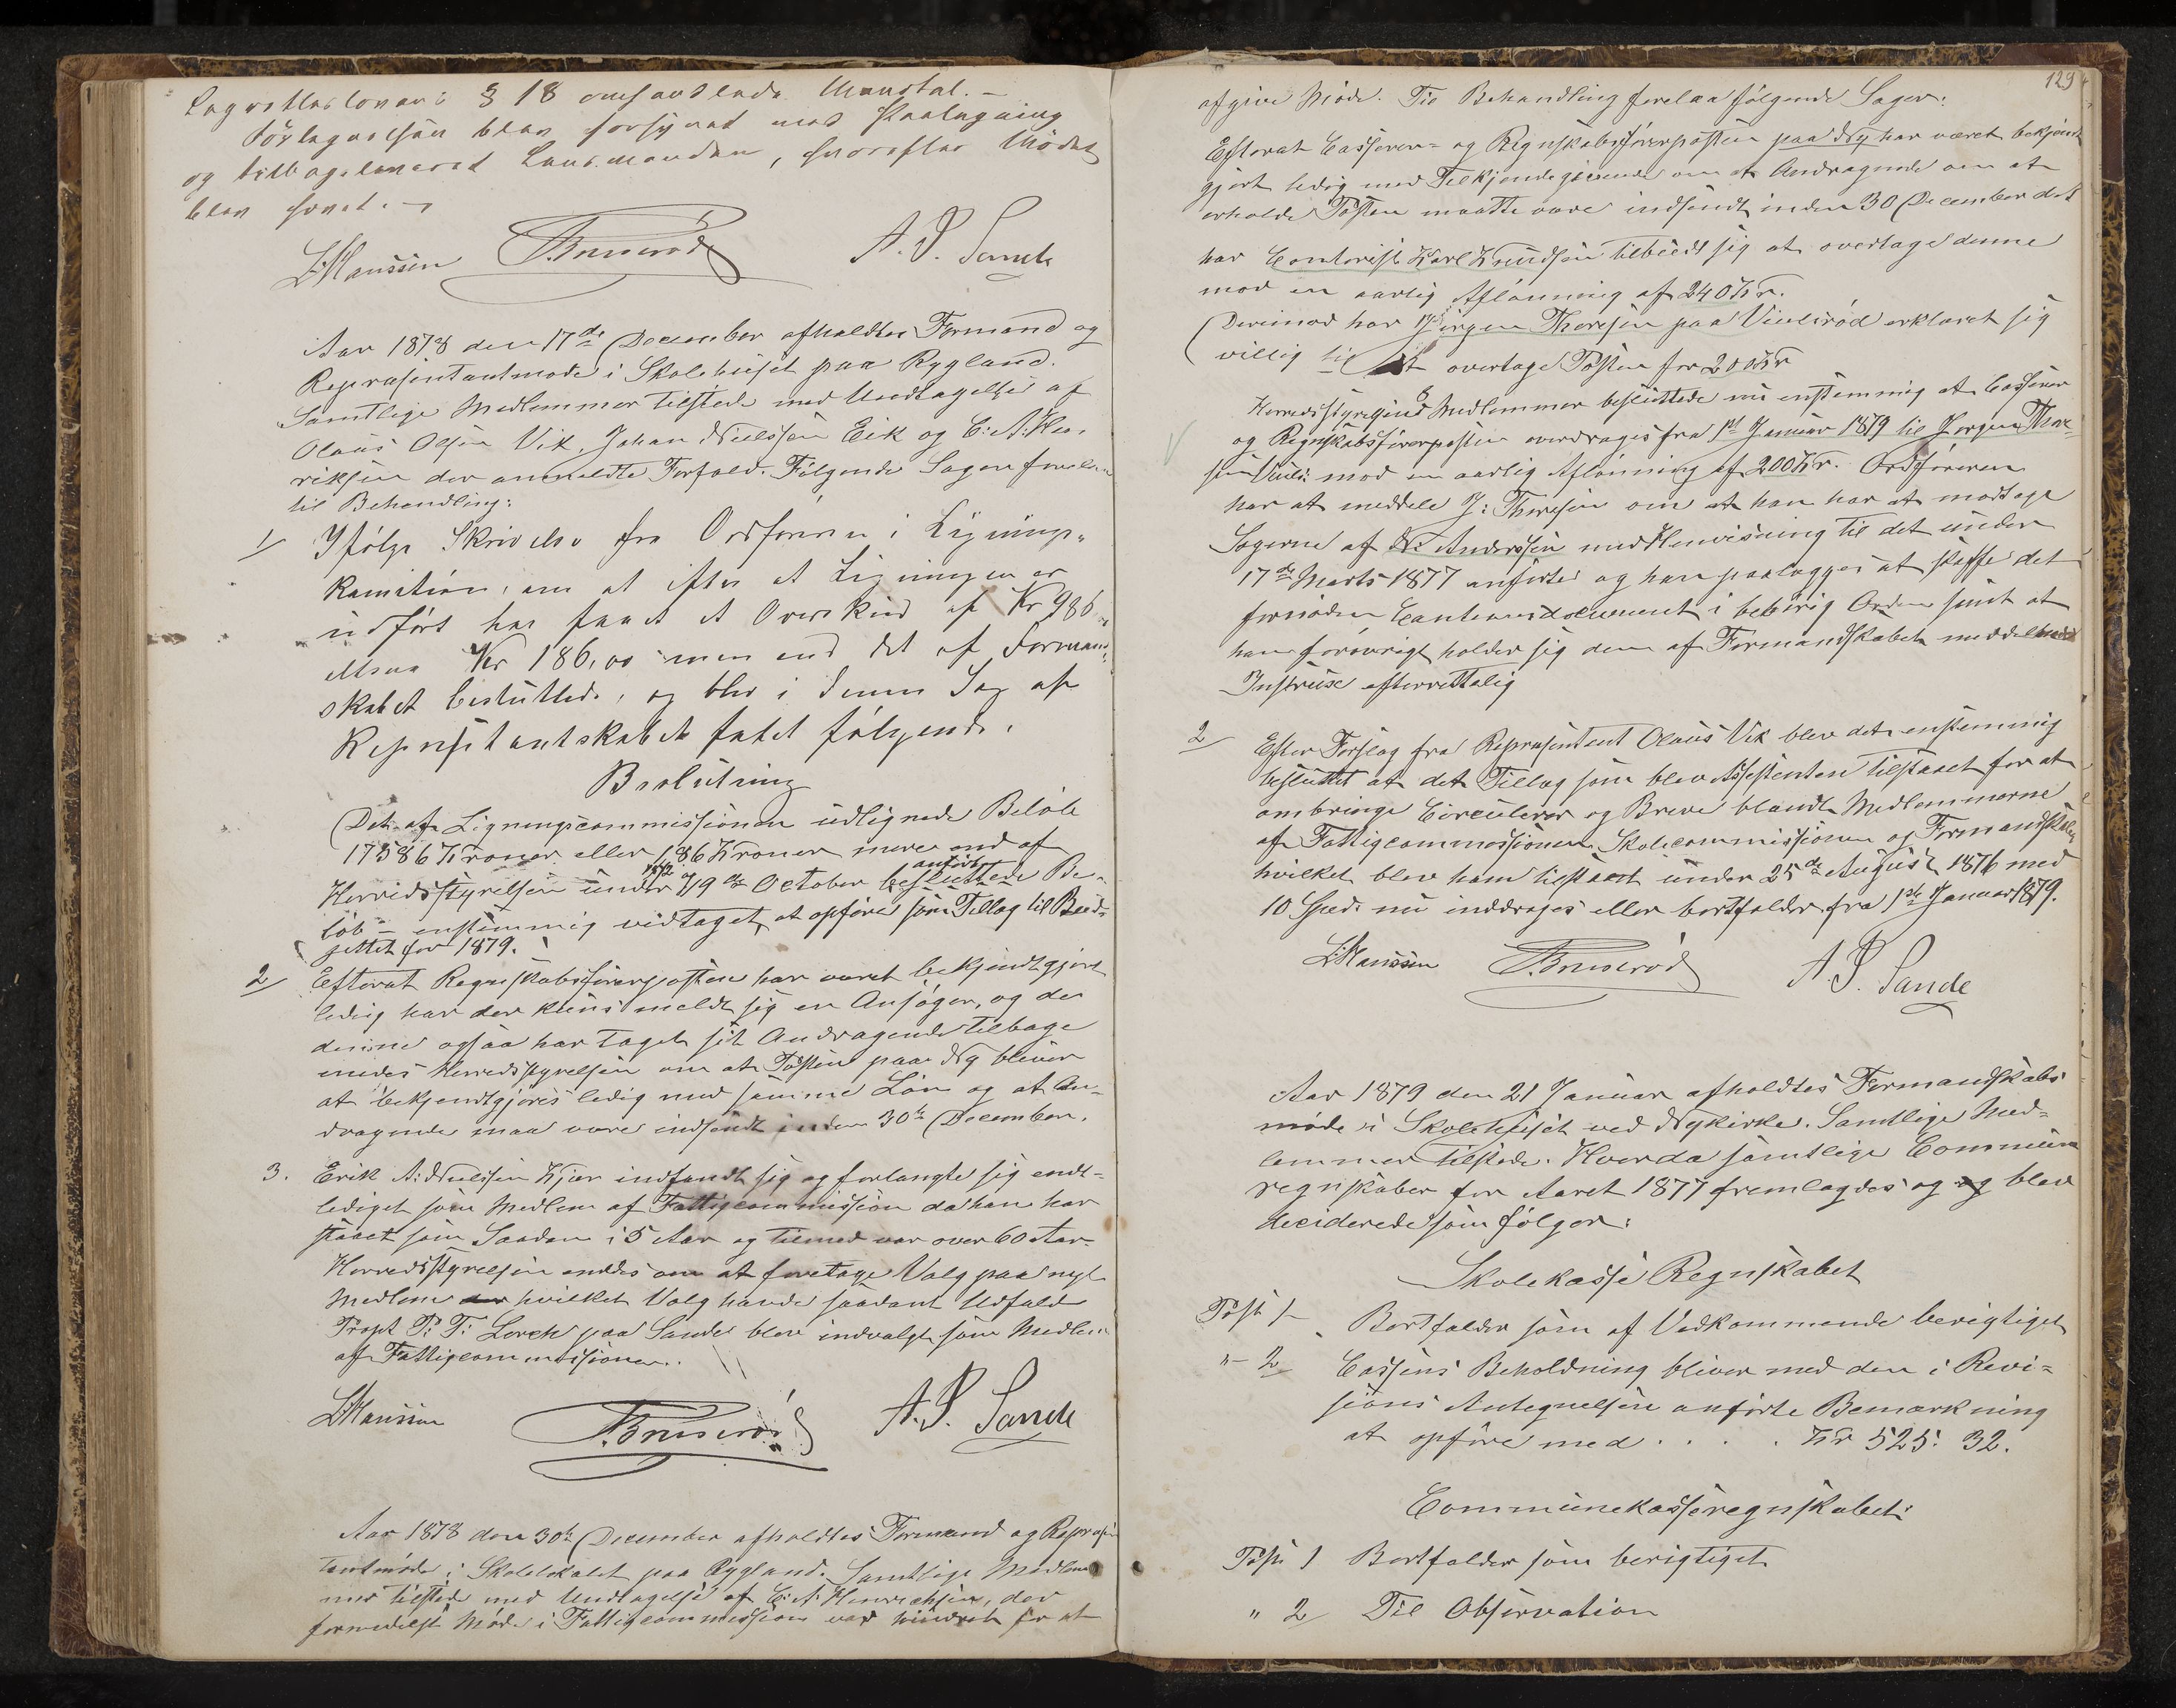 Lagrettesloven's § 18 omhandlede Manstal. –
Förtegnelsen blev forsynet med Paategning
og tilbageleveret Lensmanden, hvorefter Mödet
blev hevet. –
L. Hanssen T. Bruserød A. P. Sande
Aar 1878 den 17de December afholdtes Formand og
Repræsentantmøde i Skolehuset paa Rygland.
Samtlige Medlemmer tilstede med Undtagelse af
Olaus Olsen Vik, Johan Nielssen Eik og C: A: Hen-
riksen der anmeldte Forfald. Følgende Sager forelaa
til Behandling:
1/ Ifølge Skrivelse fra Ordføreren i Lignings-
komitéen, om at efter at Ligningen er
udført har faaet et Overskud af Kr 986
altsaa Kr 186,00 mere end det af Formand-
skabet besluttede, og blev i denne Sag af
Repræsentantskabet fatet følgende.
Beslutning
Det af Ligningscommissionen udlignede Beløb
17586 Kroner eller 186 Kroner mere end af
Herredsstyrelsen under 19de October 1878 besluttede anførte Be-
løb – enstemmig vedtaget, at opføre som Tillæg til Bud-
gettet for 1879.
2/ Efterat Regnskabsførerposten har været bekjendtgjort
ledig har der kuns meldt sig en Ansøger, og da
denne ogsaa har taget sit Andragende tilbage
enedes Herredsstyrelsen om at Posten paa Ny bliver
at bekjendtgjøres ledig med samme Løn og at An-
dragende maa være indsendt inden 30te December.
3. Erik A: Nielssen Kjær indfandt sig og forlangte sig endt-
lediget som Medlem af Fattigcommission da han har
staaet som Saadan i 5 Aar og tilmed var over 60 Aar.
Herredsstyrelsen enedes om at foretage Valg paa nyt
Medlem hvilket Valg havde saadant Udfald
Propt P: T: Lerch paa Sande blev indvalgt som Medlem
af Fattigcommissionen.
L. Hanssen T. Bruserød A. P. Sande
Aar 1878 den 30te December afholdtes Formand og Repræsen
tantmøde i Skolelokalet paa Rygland. Samtlige Medlem
mer tilstede med Undtagelse af C: A: Henrichsen, der
formedelst Møde i Fattigcommission var hindret for at
129
afgive Møde. Til Behandling forelaa følgende Sager:
Efterat Casserer- og Regnskabsførerposten paa Ny har været bekjendt
gjort ledig med Tilkjendegivende om at Andragende om at
erholde Posten maatte være indsendt inden 30 December det
har Contorist Karl Knudsen tilbudt sig at overtage denne
mod en aarlig Aflønning af 240 Kr.
Derimod har Jørgen Thoresen paa Vulsrød erklæret sig
villig til at overtage Posten for 200 Kr
Herredsstyrelsens Medlemmer besluttede nu enstemmig at Casserer
og Regnskabsførerposten overdrages fra 1st Januar 1879 til Jørgen Thore-
sen mod en aarlig Aflønning af 200 Kr. Ordføreren
har at meddele J: Thoresen om at han har at modtage
Sagerne af N: Anderssen med Henvisning til det under
17de Marts 1877 anførte og han paalægges at skaffe det
fornødne Cautionsdocument i behørig Orden samt at
han forøvrigt holder sig den af Formandskabet meddelte
Instrux efterrettelig
2/ Efter Forslag fra Repræsentent Olaus Vik blev det enstemmig
besluttet at det Tillæg som blev Assistenten tilstaaet for at
ombringe Circulerer og Breve blandt Medlemmerne
af Fattigcommossionen, Skolecommissionen og Formandskabet
hvilket blev ham tilstaaet under 25de August 1876 med
10 Spd. nu inddrages eller bortfalder fra 1ste Januar 1879.
L. Hanssen T. Bruserød A. P. Sande
Aar 1879 den 21 Januar afholdtes Formandskabs
møde i Skolehuset ved Nykirke. Samtlige Med-
lemmer tilstede. Hvorda samtlige Commune
regnskaber for Aaret 1877 fremlagdes og og blev
deciderede som følger:
Skolekasse Regnskabet
Post 1 Bortfalder som af Vedkommende berigtiget
" – 2 Cassens Beholdning bliver med den i Revi-
sions Antegnelsen anførte Bemærkning
at opføre med . . . . Kr 525. 32.
Communekasseregnskabet:
Post 1 Bortfalder som berigtiget
" 2/ Til Observation